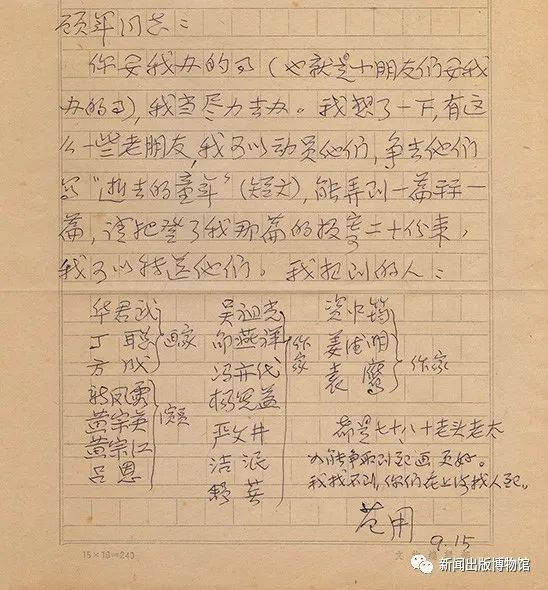 顾军同志：
你要我办的事（也就是小朋友们要我
办的事），我当尽力去办。我想了一下，有这
么一些老朋友，我可以动员他们，争去他们
写"逝去的童年"（短文），能弄到一篇算一
篇，请把登了我那篇的报寄二十份来，
我可以转送他们。我想到的人：
华君武
丁聪
方成
画家
新凤霞
黄宗英
黄宗江
吕恩
演员
吴祖光
邵燕祥
冯亦代
杨宪益
严文井
洁泯
舒芜
作家
资中筠
姜德明
袁鹰
作家
都是七十八十老头老太
如能争取到配画更好。
我找不到，你们在上海找人配。
范用
9.15
15×16=240
新闻出版博物馆